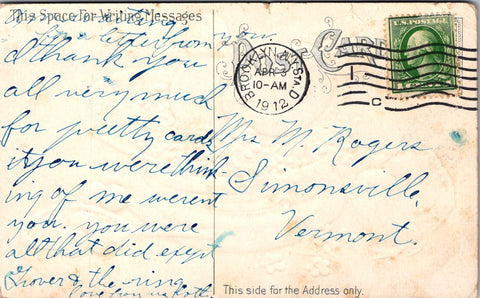 This Space for Writing Messages
letter from you.
I thank you
all very much
for pretty cards
if you were think
ing of me werent
you. you were
all that did exept
Grover & the ring
love from us both
POST CARD
BROOKLYN, N.Y. STA. D.
APR 3
10-AM
1912
U.S. POSTAGE
Mrs M. Rogers
Simonsville,
Vermont.
This side for the Address only.